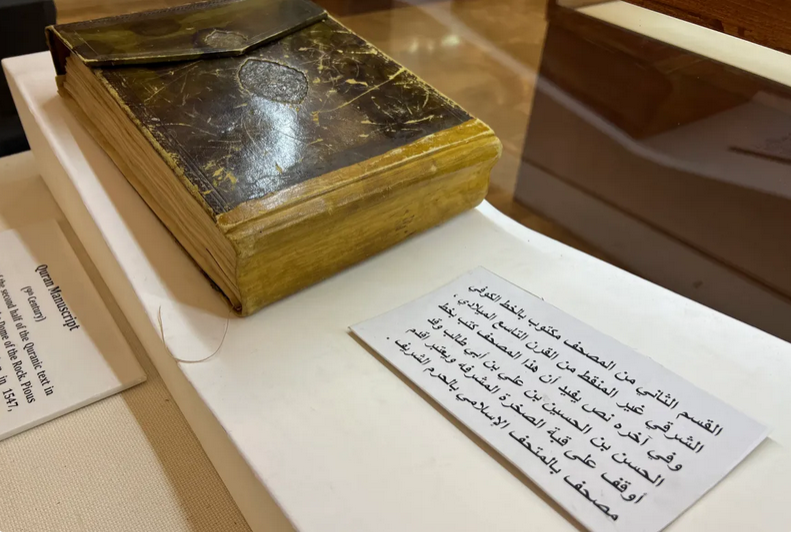 Quran Manuscript
(9th Century)
the second half of the Quranic text in
Dome of the Rock. Pious
in 1547,
القسم الثاني من المصحف مكتوب بالخط الكوفي
الشرقي غير المنقط من القرن التاسع الميلادي ،
وفي آخره نص يفيد أن هذا المصحف كتب بخط
الحسن بن الحسين بن علي بن أبي طالب وقد
أوقف على قبة الصخرة المشرفة ويعتبر أقدم
مصحف بالمتحف الإسلامي بالحرم الشريف .